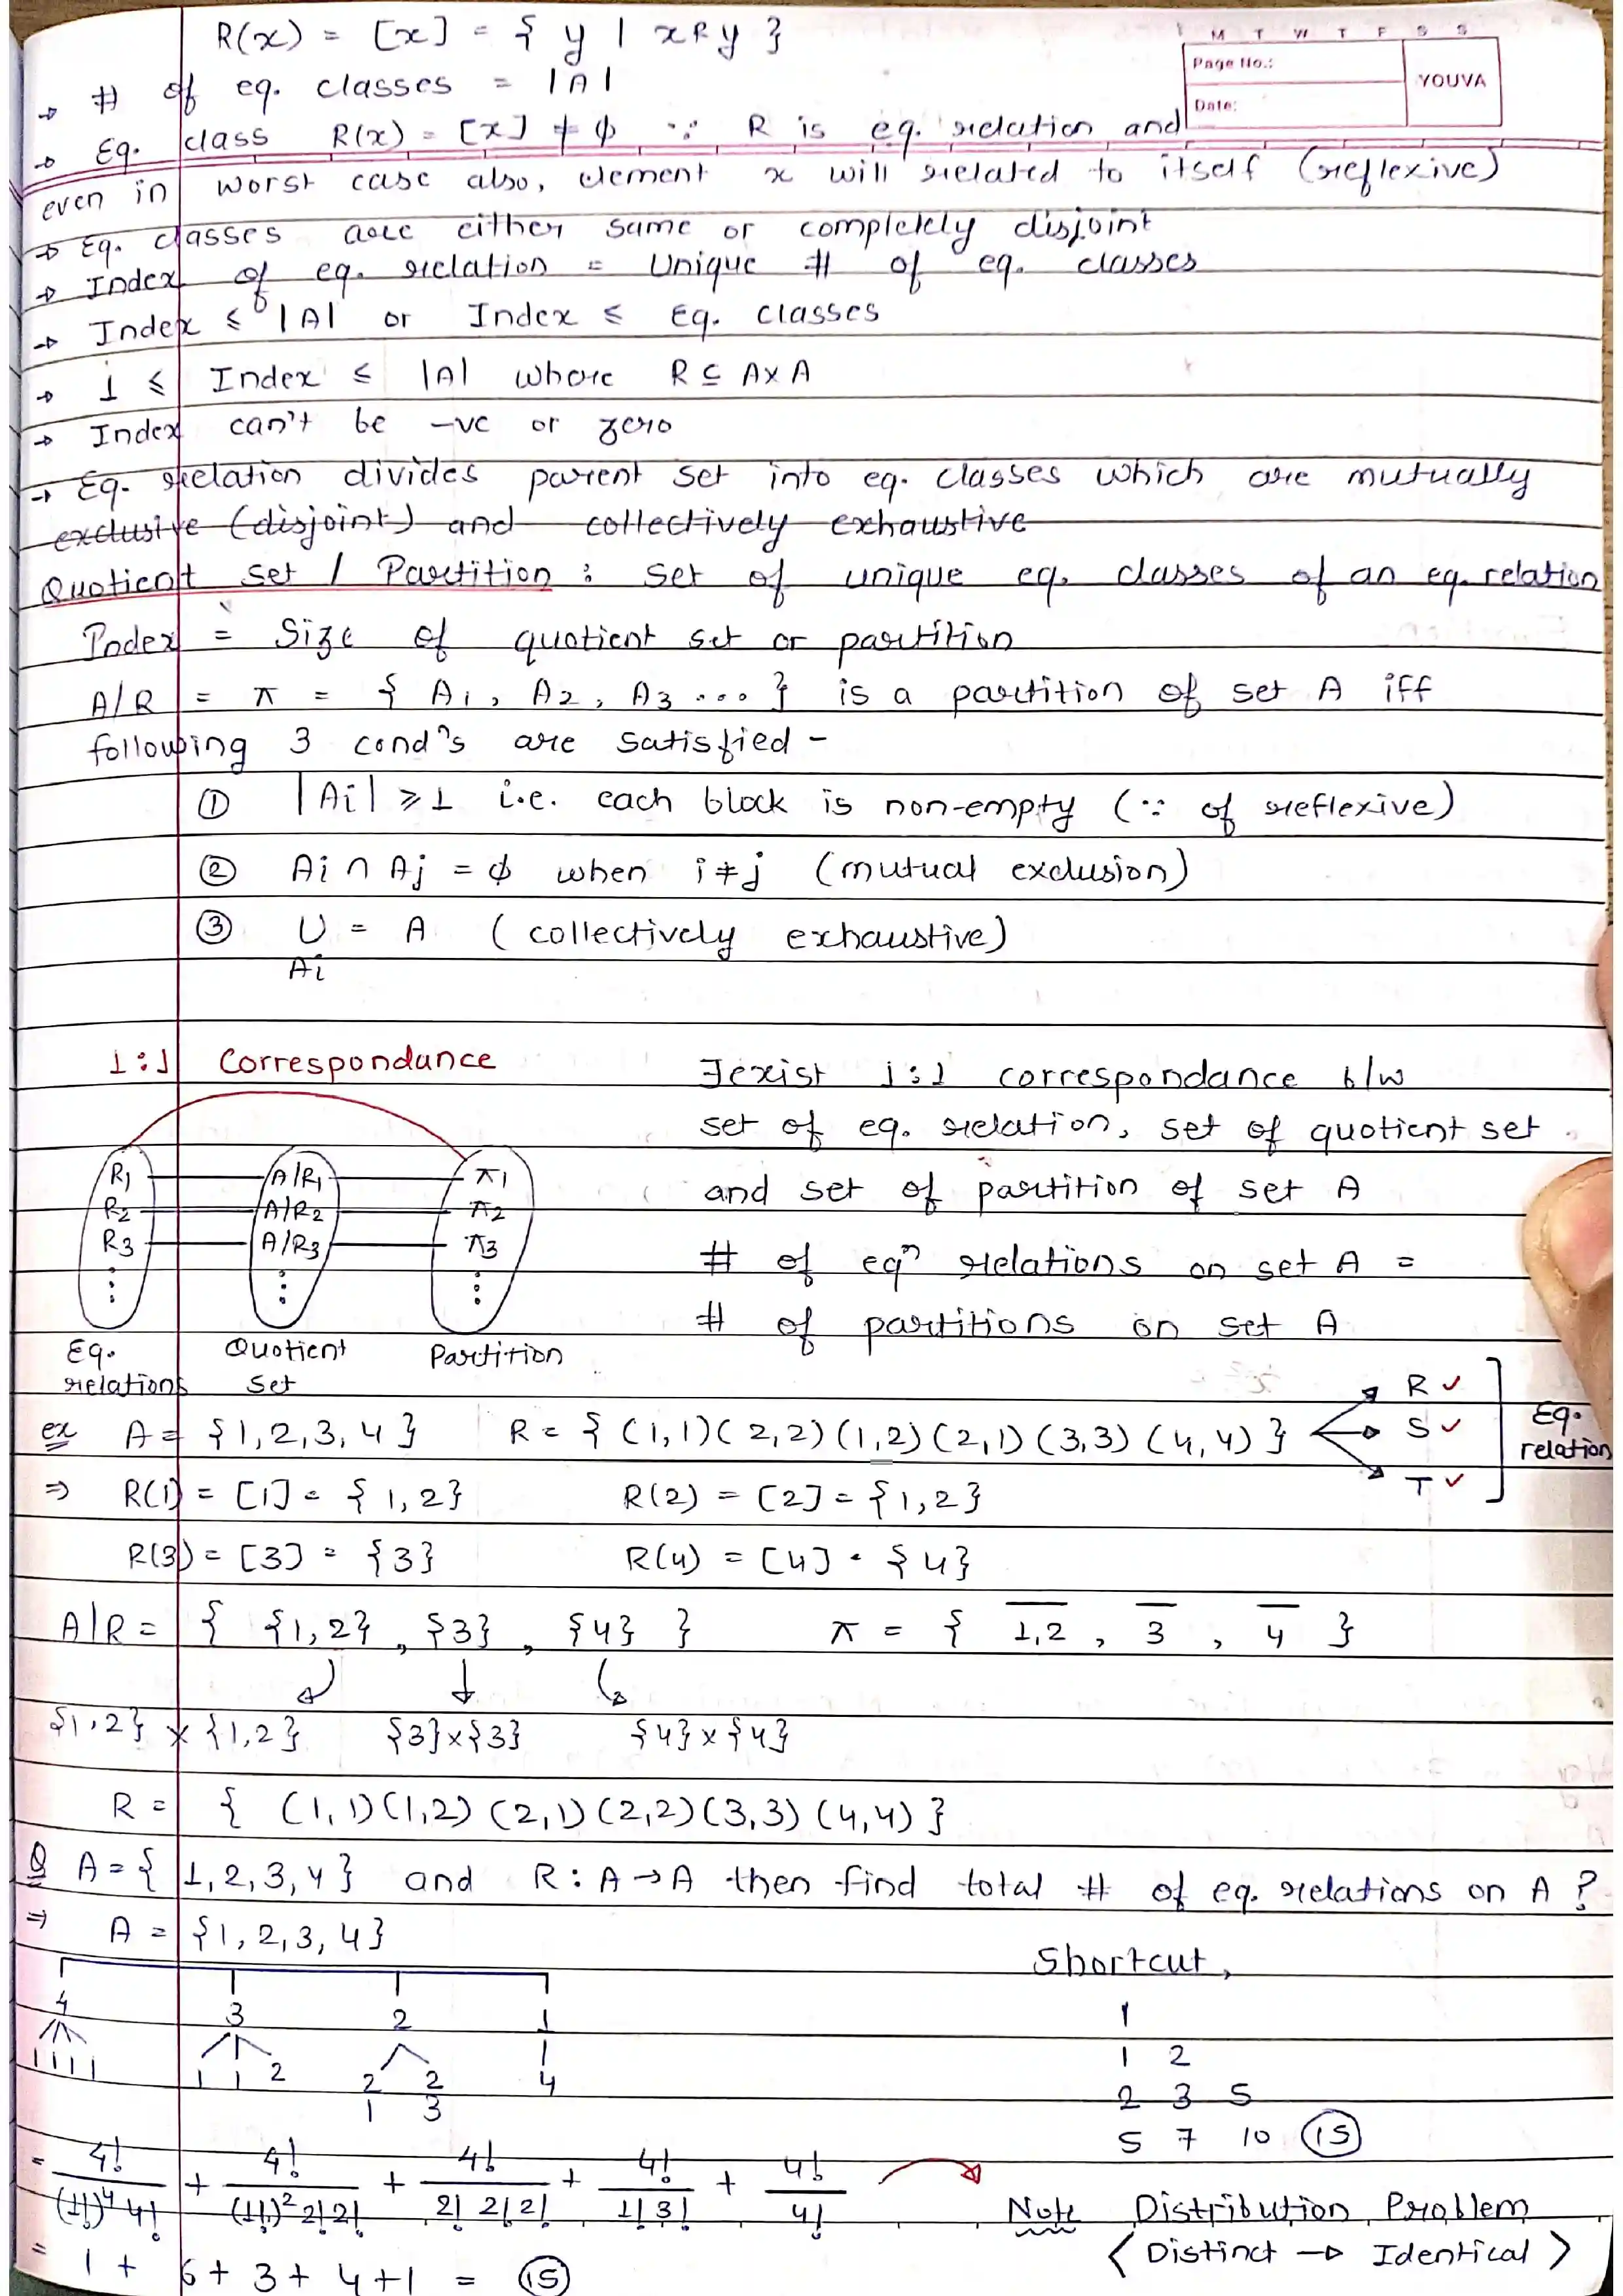 R(x) = [x] = { y | x R y }
M T W T F S S
Page No.:
YOUVA
Date:
→ # of eq. classes = |A|
→ Eq. class R(x) = [x] ≠ ϕ ∵ R is eq. relation and
even in worst case also, element x will related to itself (reflexive)
→ Eq. classes are either same or completely disjoint
→ Index of eq. relation = Unique # of eq. classes
→ Index ≤ |A| or Index ≤ Eq. classes
→ 1 ≤ Index ≤ |A| where R ⊆ A×A
→ Index can't be -ve or zero
→ Eq. relation divides parent set into eq. classes which are mutually
exclusive (disjoint) and collectively exhaustive
Quotient set / Partition : Set of unique eq. classes of an eq. relation
Index = Size of quotient set or partition
A/R = π = { A1, A2, A3 ... } is a partition of set A iff
following 3 condⁿs are satisfied -
① |Ai| ≥ 1 i.e. each block is non-empty (∵ of reflexive)
② Ai ∩ Aj = ϕ when i ≠ j (mutual exclusion)
③ ∪ = A (collectively exhaustive)
Ai
1:1 Correspondance
∃exist 1:1 correspondance b/w
set of eq. relation, set of quotient set
and set of partition of set A
# of eqⁿ relations on set A =
# of partitions on set A
R1 A/R1 π1
R2 A/R2 π2
R3 A/R3 π3
⋮ ⋮ ⋮
Eq. relations
Quotient Set
Partition
ex A = {1,2,3,4} R = { (1,1)(2,2)(1,2)(2,1)(3,3)(4,4) }
R ✓
S ✓
T ✓
Eq. relation
⇒ R(1) = [1] = {1,2} R(2) = [2] = {1,2}
R(3) = [3] = {3} R(4) = [4] = {4}
A/R = { {1,2}, {3}, {4} } π = { 1,2 , 3 , 4 }
{1,2} × {1,2} {3}×{3} {4}×{4}
R = { (1,1)(1,2)(2,1)(2,2)(3,3)(4,4) }
Q A = {1,2,3,4} and R : A → A then find total # of eq. relations on A ?
⇒ A = {1,2,3,4}
4 3 2 1
1 1 1 1 1 1 2 2 2 4
1 3
Shortcut,
1
1 2
2 3 5
5 7 10 15
= 4!/(1!)⁴ 4! + 4!/(1!)² 2! 2! + 4!/2! 2! 2! + 4!/1! 3! + 4!/4!
= 1 + 6 + 3 + 4 + 1 = 15
Note Distribution Problem
< Distinct → Identical >